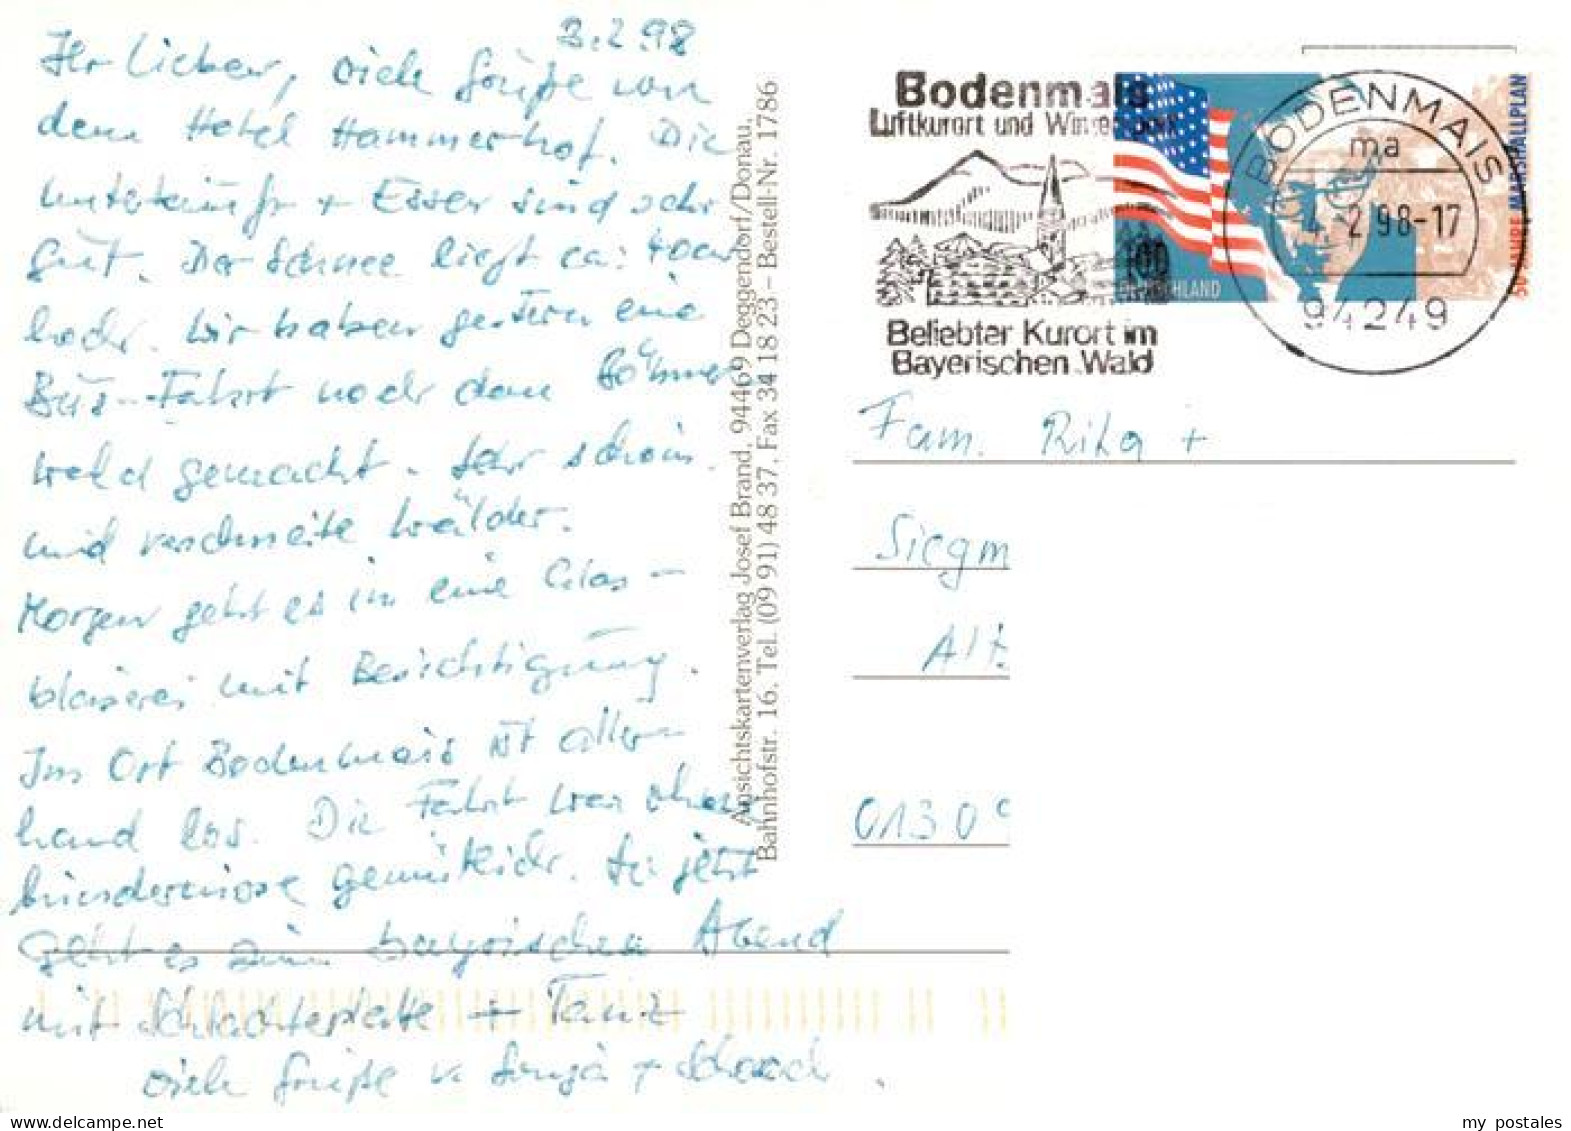 3.2.98
Ihr Lieben, viele Grüße von
dem Hotel Hammerhof. Die
Unterkunft + Essen sind sehr
gut. Der Schnee liegt ca:
hoch. Wir haben gestern eine
Bus-Fahrt nach dem Böhmer
wald gemacht. Sehr schön
und verschneite Wälder.
Morgen geht es in eine Glas-
bläserei mit Besichtigung.
Im Ort Bodenmais ist aller-
hand los. Die Fahrt war ohne
hindernisse gemütlich. Jetzt
geht es zum bayrischen Abend
mit Schlachteplatte + Tanz
viele Grüße v. +
Ansichtskartenverlag Josef Brand, 94469 Deggendorf/Donau,
Bahnhofstr. 16, Tel. (09 91) 48 37, Fax 34 18 23 – Bestell-Nr. 1786
Bodenmais
Luftkurort und Wintersport
Beliebter Kurort im
Bayerischen Wald
100
DEUTSCHLAND
50 JAHRE MARSHALLPLAN
BODENMAIS
ma
4.2.98-17
94249
Fam. Rita +
Siegm
Alt.
01309
my postales